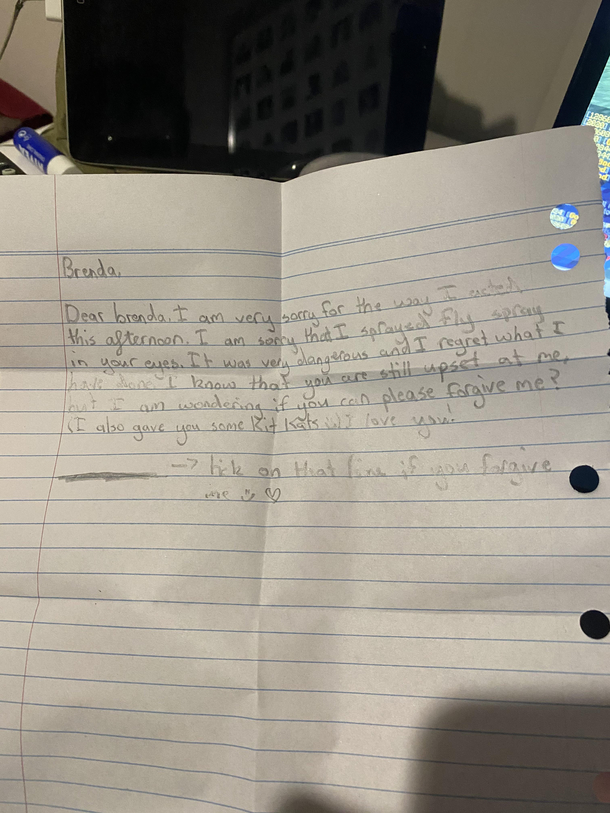 Brenda,
Dear brenda. I am very sorry for the way I acted
this afternoon. I am sorry that I sprayed fly spray
in your eyes. It was very dangerous and I regret what I
have done I know that you are still upset at me,
but I am wondering if you can please forgive me?
(I also gave you some Kit Kats I love you!
—> tick on that line if you forgive
me